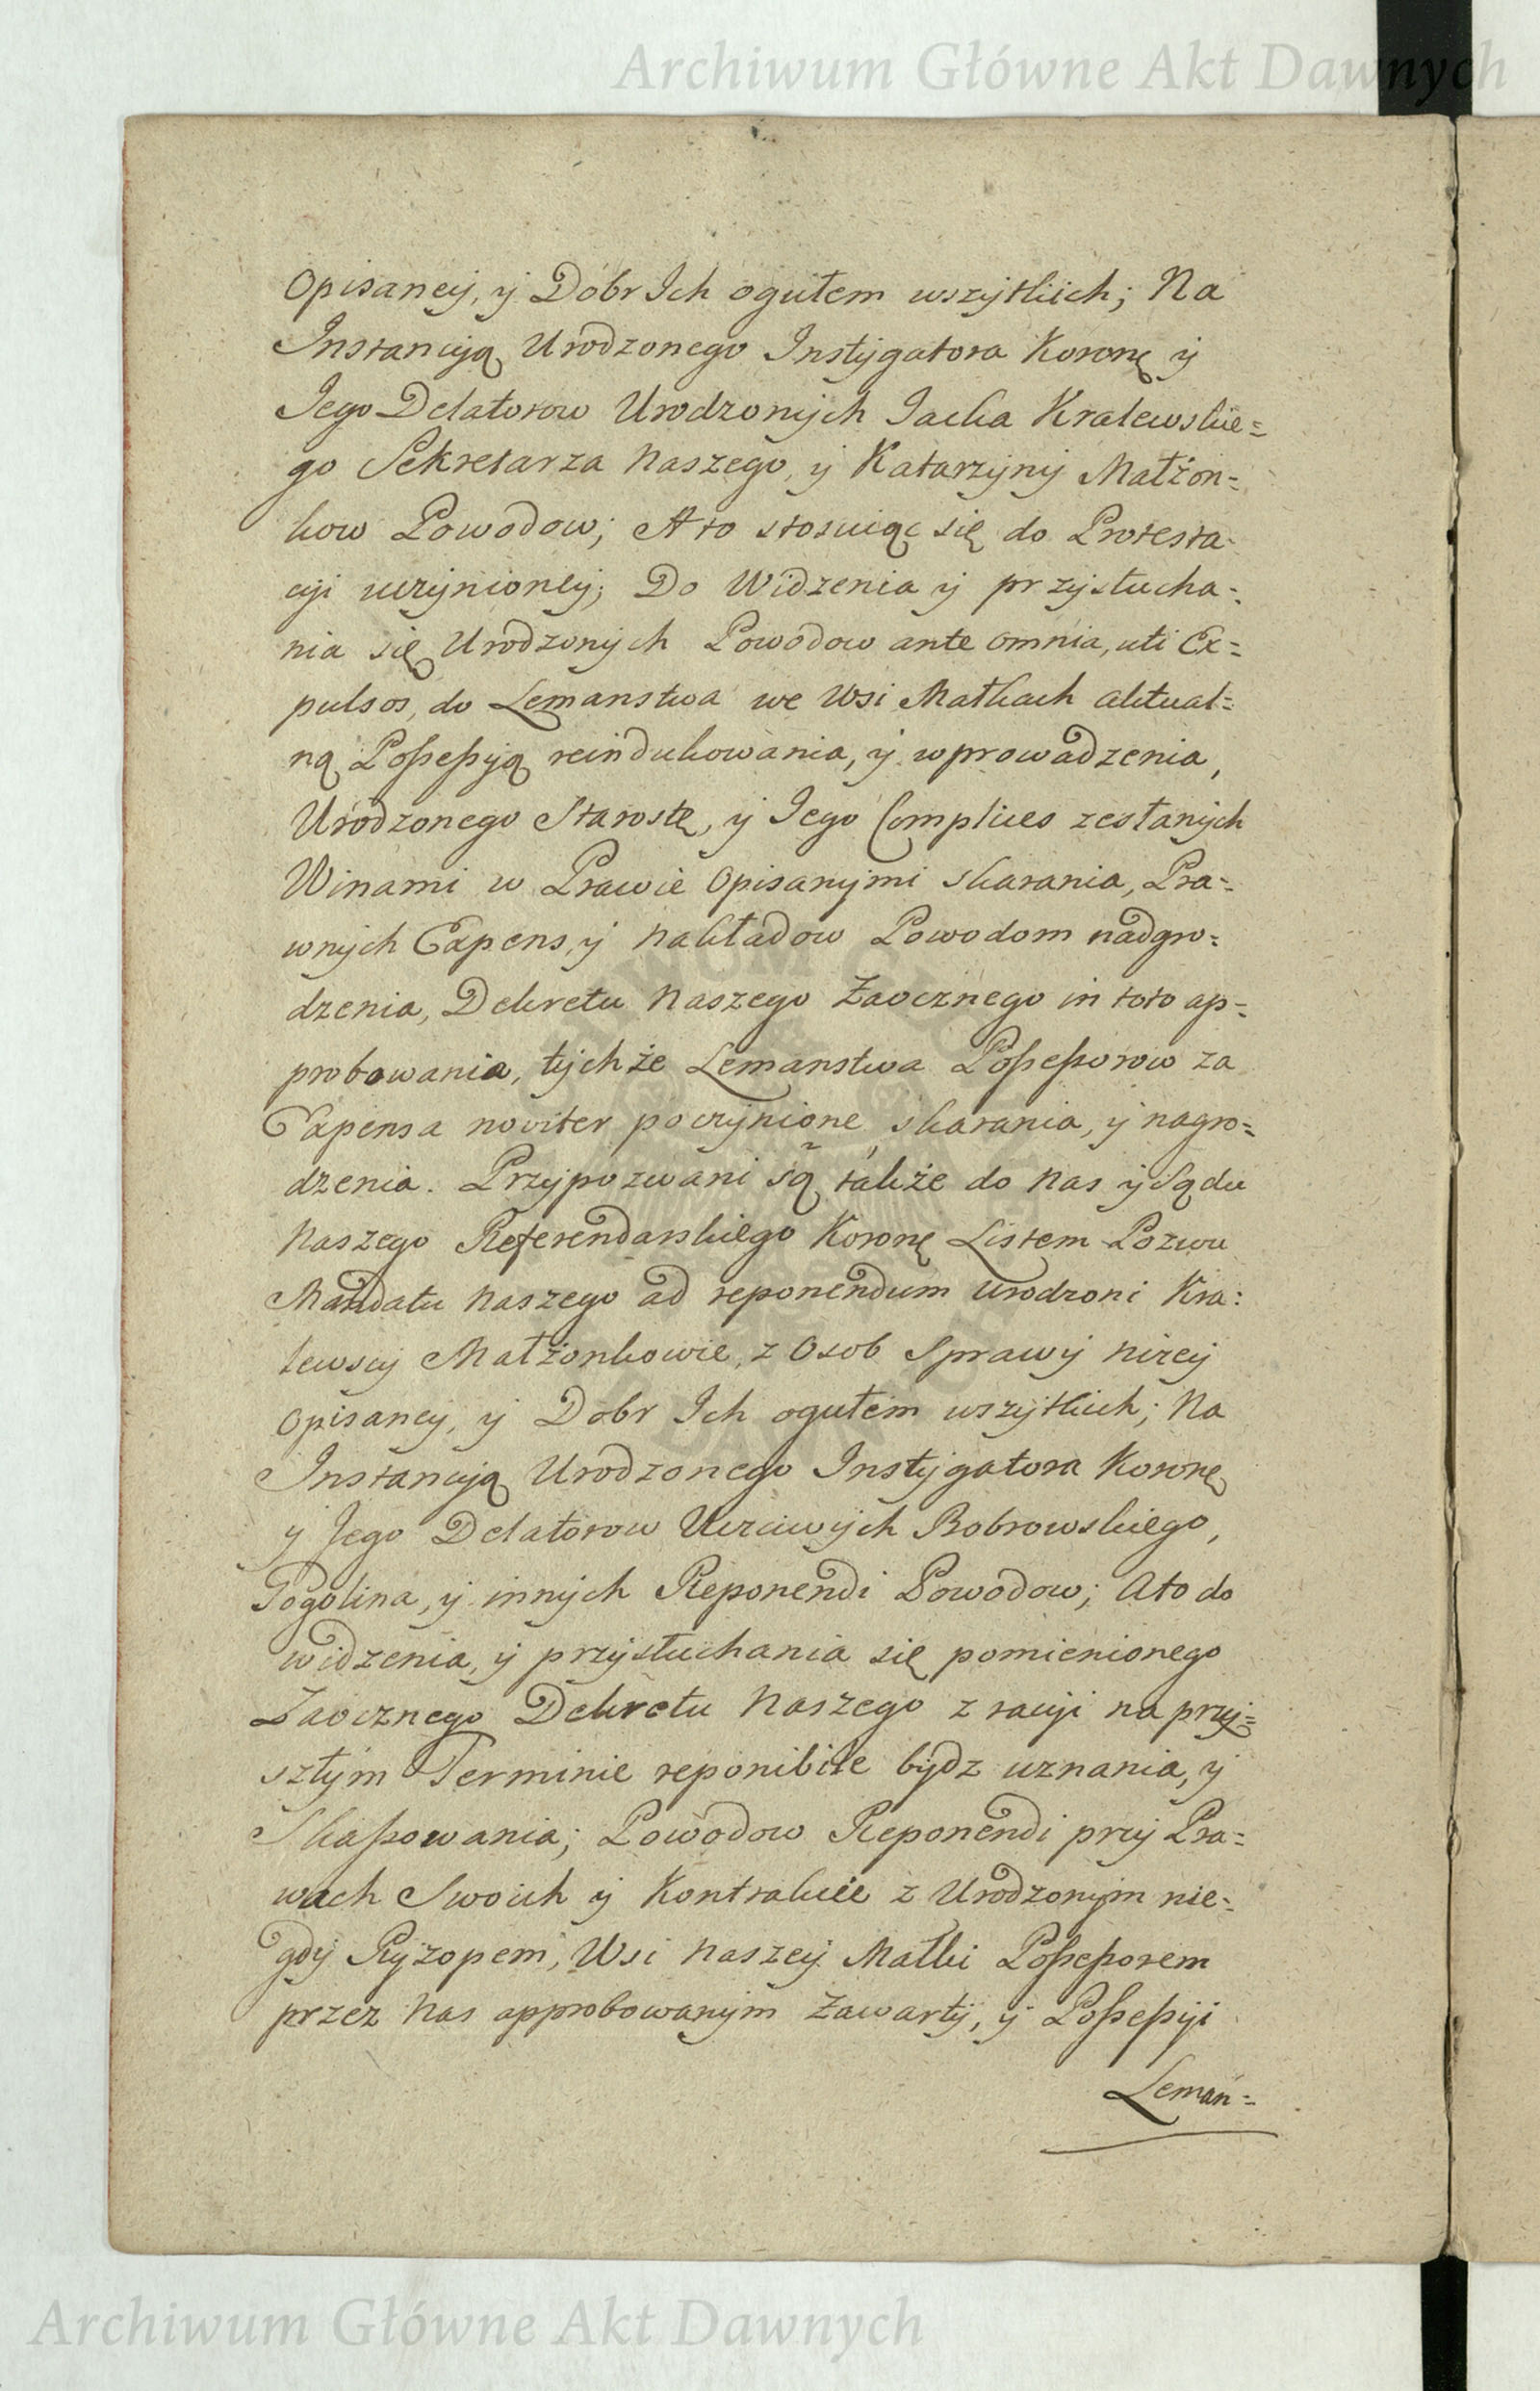 Archiwum Główne Akt Dawnych
Opisaney, y Dobr Ich ogułem wszytkich; Na
Instancyą Urodzonego Instygatora Koronę y
Jego Delatorow Urodzonych Jacka Kralewskie=
go Sekretarza Naszego, y Katarzyny Małżon=
kow Powodow; A to stosuiąc się do Protesta-
cyi uczynioney; Do Widzenia y przysłucha=
nia się Urodzonych Powodow ante omnia, uti Ex=
pulsos, do Lemanstwa we Wsi Mątkach aktual=
ną Possessyą reindukowania, y wprowadzenia,
Urodzonego Starostę, y Jego Complices zesłanych
Winami w Prawie Opisanymi skarania, Pra=
wnych Expens, y nakładow Powodom nadgro=
dzenia, Dekretu Naszego Zaocznego in toto ap=
probowania, tychże Lemanstwa Possessorow za
Expensa noviter poczynione skarania, y nagro=
dzenia. Przypozwani są także do Nas y Sądu
Naszego Referendarskiego Koronę Listem Pozwu
Mandatu Naszego ad reponendum Urodzoni Kra=
lewscy Małżonkowie, z Osob Sprawy niżey
Opisaney, y Dobr Ich ogułem wszytkich; Na
Instancyą Urodzonego Instygatora Koronę
y Jego Delatorow Uczciwych Bobrowskiego,
Gogolina, y innych Reponendi Powodow; A to do
widzenia, y przysłuchania się pomienionego
Zaocznego Dekretu Naszego z racyi na przy=
szłym Terminie reponibile bydz uznania, y
Skassowania; Powodow Reponendi przy Pra=
wach Swoich y Kontrakcie z Urodzonym nie=
gdy Ryzopem, Wsi Naszey Matki Possessorem
przez Nas approbowanym Zawarty, y Possessyi
Leman=
Archiwum Główne Akt Dawnych